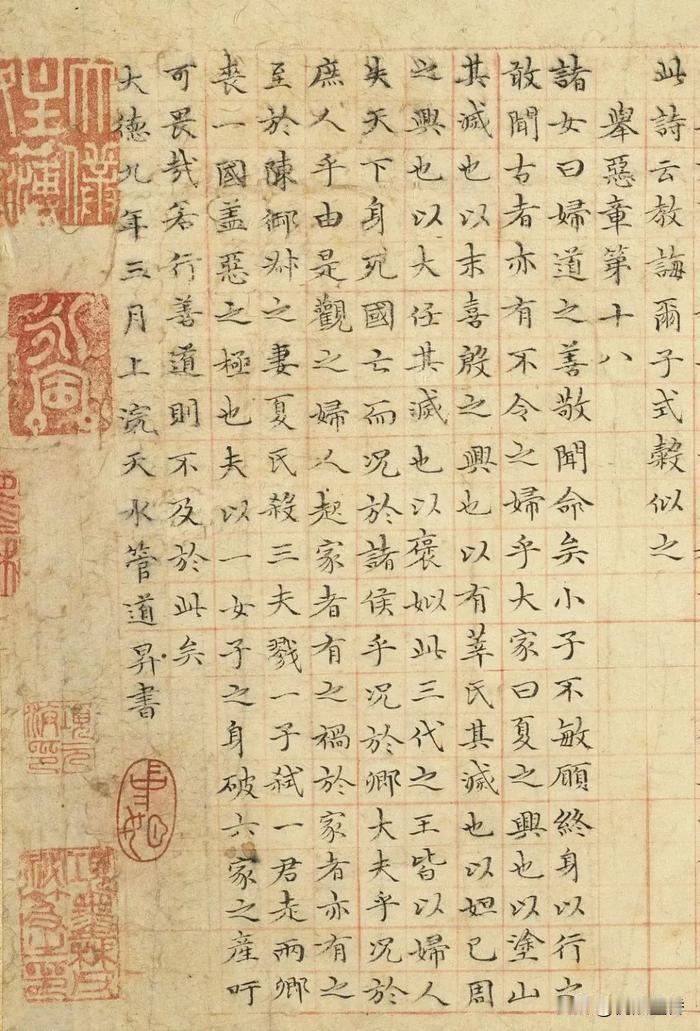 此詩云教誨爾子式穀似之
舉惡章第十八
諸女曰婦道之善敬聞命矣小子不敏願終身以行之
敢聞古者亦有不令之婦乎大家曰夏之興也以塗山
其滅也以末喜殷之興也以有莘氏其滅也以妲己周
之興也以大任其滅也以褒姒此三代之王皆以婦人
失天下身死國亡而況於諸侯乎況於卿大夫乎況於
庶人乎由是觀之婦人起家者有之禍於家者亦有之
至於陳御叔之妻夏氏殺三夫戮一子弒一君走兩卿
喪一國盖惡之極也夫以一女子之身破六家之產吁
可畏哉若行善道則不及於此矣
大德九年三月上浣天水管道昇書